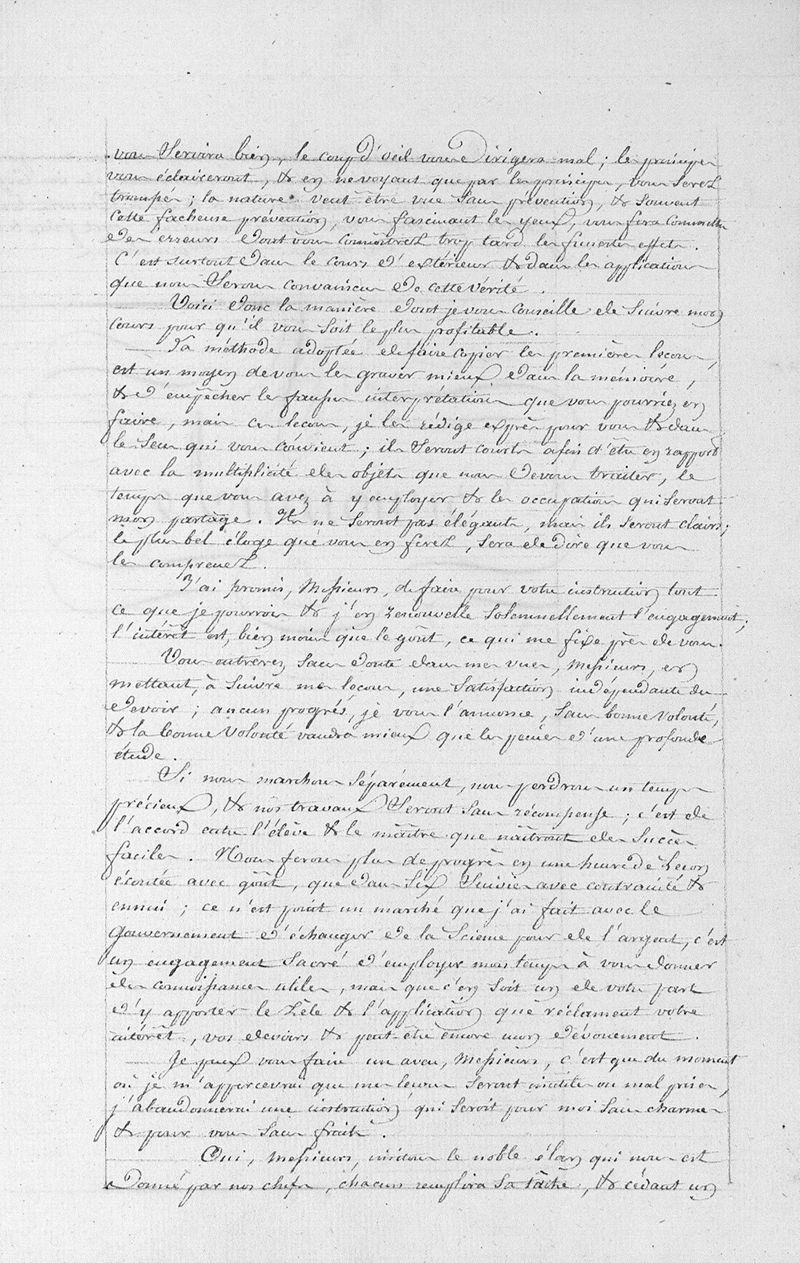 vous Servira bien, le coup d'oeil vous Dirigera mal; les principes
vous éclaireront, & en ne voyant que par les principes, vous Serez
trompés; la nature veut être vue Sans prévention, & Souvent
cette facheuse prévention, vous fascinant les yeux, vous fera Commettre
Des erreurs dont vous connoîtrez trop tard les funestes effets.
C'est surtout dans le cours d'extérieur & dans les applications
que nous Serons convaincus de cette vérité.
Voici donc la manière dont je vous Conseille de Suivre mon
Cours pour qu'il vous Soit le plus profitable.
La méthode adoptée de faire copier les premières leçons,
est un moyen de vous les graver mieux dans la mémoire,
& d'empêcher les fausses interprétations que vous pourriez en
faire, mais ces leçons, je les rédige exprès pour vous & dans
le Sens qui vous convient; ils Seront courts afin d'être en rapport
avec la multiplicité des objets que nous devons traiter, le
temps que vous avez à y employer & les occupations qui Seront
mon partage. Ils ne Seront pas élégants, mais ils Seront clairs;
le plus bel éloge que vous en ferez, Sera de dire que vous
les comprenez.
J'ai promis, Messieurs, de faire pour votre instruction tout
ce que je pourrois & j'en renouvelle Solemnellement l'engagement;
l'intérêt est, bien moins que le goût, ce qui me fixe près de vous.
Vous entrerez Sans doute dans mes vues, Messieurs, en
mettant, à Suivre mes leçons, une Satisfaction indépendante du
devoir; aucuns progrés, je vous l'annonce, Sans bonne volonté,
& la bonne volonté vaudra mieux que les peines d'une profonde
étude.
Si nous marchons Séparément, nous perdrons un temps
précieux, & nos travaux Seront Sans récompense; c'est de
l'accord entre l'élève & le maître que naîtront des Succès
faciles. Nous ferons plus de progrès en une heure de Leçon
écoutée avec goût, que dans Six Suivies avec contrainte &
ennui; ce n'est point un marché que j'ai fait avec le
Gouvernement d'échanger de la Science pour de l'argent, c'est
un engagement Sacré d'employer mon temps à vous donner
des connoissances utiles, mais que c'en Soit un de votre part
d'y apporter le Zèle & l'application que réclament votre
intérêt, vos devoirs & peut-être encore mon dévouement.
Je puis vous faire un aveu, Messieurs, c'est que du moment
où je m'appercevrai que mes leçons Seront inutiles ou mal prises,
j'abandonnerai une instruction qui Seroit pour moi Sans charmes
& pour vous Sans fruits.
Oui, Messieurs, imitons le noble élan qui nous est
Donné par nos chefs, chacun remplira Sa tâche, & cédant un